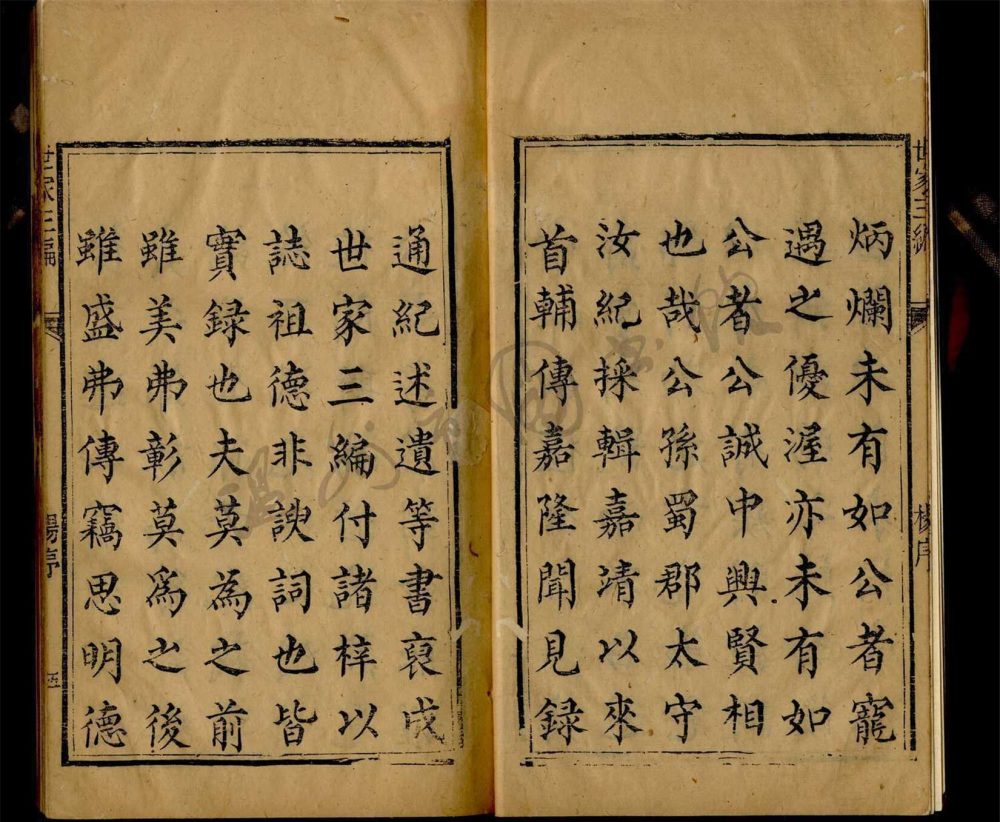 世家三編
楊序
炳爛未有如公者寵
遇之優渥亦未有如
公者公誠中興賢相
也哉公孫蜀郡太守
汝紀採輯嘉靖以來
首輔傳嘉隆聞見録
通紀述遺等書裒成
世家三編付諸梓以
誌祖德非諛詞也皆
實録也夫莫為之前
雖美弗彰莫爲之後
雖盛弗傳竊思明德
世家三編
楊序
五